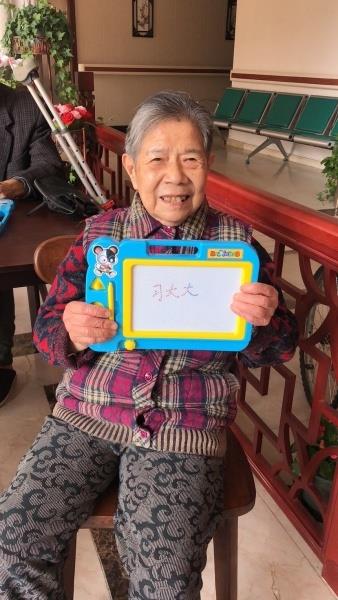 习大大